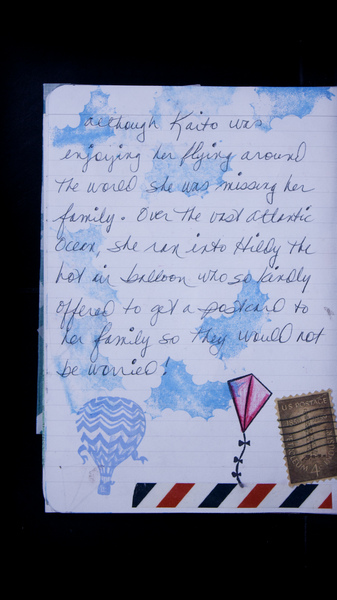 although Kaito was
enjoying her flying around
the world she was missing her
family. Over the vast atlantic
Ocean, she ran into Hildy the
hot air balloon who so kindly
offered to get a postcard to
her family so they would not
be worried!
U.S. POSTAGE
4